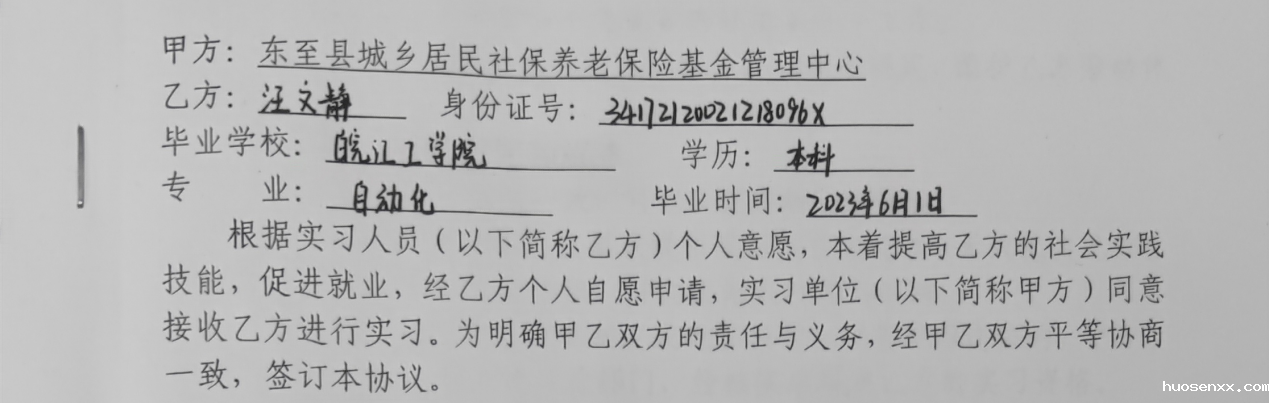 甲方：东至县城乡居民社保养老保险基金管理中心
乙方：汪文静 身份证号：34172120021218096X
毕业学校：皖江工学院 学历：本科
专 业：自动化 毕业时间：2023年6月1日
根据实习人员（以下简称乙方）个人意愿，本着提高乙方的社会实践
技能，促进就业，经乙方个人自愿申请，实习单位（以下简称甲方）同意
接收乙方进行实习。为明确甲乙双方的责任与义务，经甲乙双方平等协商
一致，签订本协议。
huosenxx.com